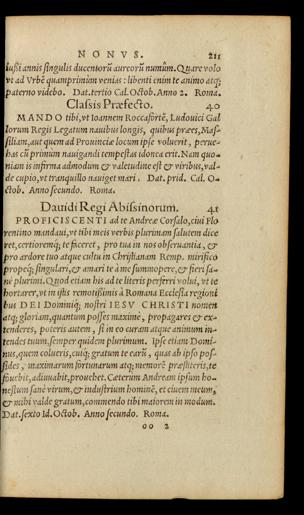 NONVS. 211
iussi annis singulis ducentorũ aureorũ numũm. Quare volo
vt ad Vrbẽ quamprimùm venias: libenti enim te animo atq;
paterno videbo. Dat. tertio Cal. Octob. Anno 2. Roma.
Classis Præfecto. 40
MANDO tibi, vt Ioannem Roccafortẽ, Ludouici Gal
lorum Regis Legatum nauibus longis, quibus præes, Mas-
siliam, aut quem ad Prouinciæ locum ipse voluerit, perue-
has cũ primùm nauigandi tempestas idonea erit. Nam quo-
niam is infirma admodum & valetudine est & viribus, val-
de cupio, vt tranquillo nauiget mari. Dat. prid. Cal. O-
ctob. Anno secundo. Roma.
Dauidi Regi Abissinorum. 41
PROFICISCENTI ad te Andreæ Corsalo, ciui Flo
rentino mandaui, vt tibi meis verbis plurimam salutem dice
ret, certioremq; te faceret, pro tua in nos obseruantia, &
pro ardore tuo atque cultu in Christianam Remp. mirifico
propeq; singulari, & amari te à me summopere, & fieri sa-
nè plurimi. Quod etiam his ad te literis perferri volui, vt te
hortarer, vt in istis remotissimis à Romana Ecclesia regioni
bus DEI Dominiq; nostri IESV CHRISTI nomen
atq; gloriam, quantum posses maximè, propagares & ex-
tenderes, poteris autem, si in eo curam atque animum in-
tendes tuum, semper quidem plurimum. Ipse etiam Domi-
nus, quem colueris, cuiq; gratum te earũ, quas ab ipso pos-
sides, maximarum fortunarum atq; memorẽ præstiteris, te
fouebit, adiuuabit, prouehet. Cæterum Andream ipsum ho-
nestum sanè virum, & industrium hominẽ, et ciuem meum,
& mihi valde gratum, commendo tibi maiorem in modum.
Dat. sexto Id. Octob. Anno secundo. Roma.
oo 2